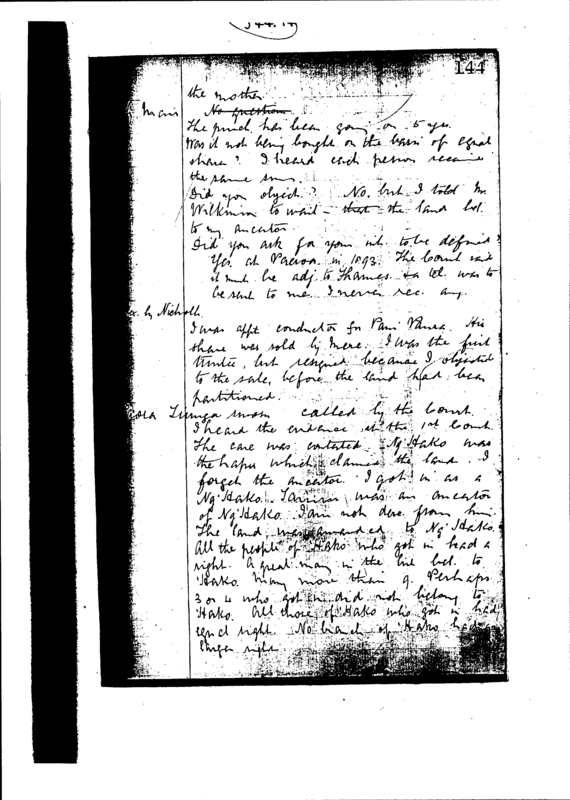 144
the mother.
Mair No question
The purch. has been going on 5 yrs.
Was it not being bought on the basis of equal
shares? I heard each person receive
the same sum.
Did you object? No, but I told Mr
Wilkinson to wait – that the land bel.
to my ancestor.
Did you ask for your int. to be defined?
Yes. at Paeroa in 1893. The Court said
it must be adj. to Thames & a tel. was to
be sent to me. I never rec. any.
x. by Nicholls.
I was appt. conductor for His
share was sold by Mere. I was the first
trustee, but resigned because I objected
to the sale, before the land had been
partitioned.
sworn called by the Court.
I heard the evidence at the 1st Court
The case was Ng' Hako was
the hapu which claimed the land. I
forget the ancestor. I got in as a
Ng' Hako. was an ancestor
of Ng' Hako. I am not desc. from him.
The land was awarded to Ng' Hako.
All the people of Hako who got in had a
right. A great many in the bel. to
Hako. Many more than 9. Perhaps
3 or 4 who got in did not belong to
Hako. All those of Hako who got in had
equal right. No branch of Hako had
larger right